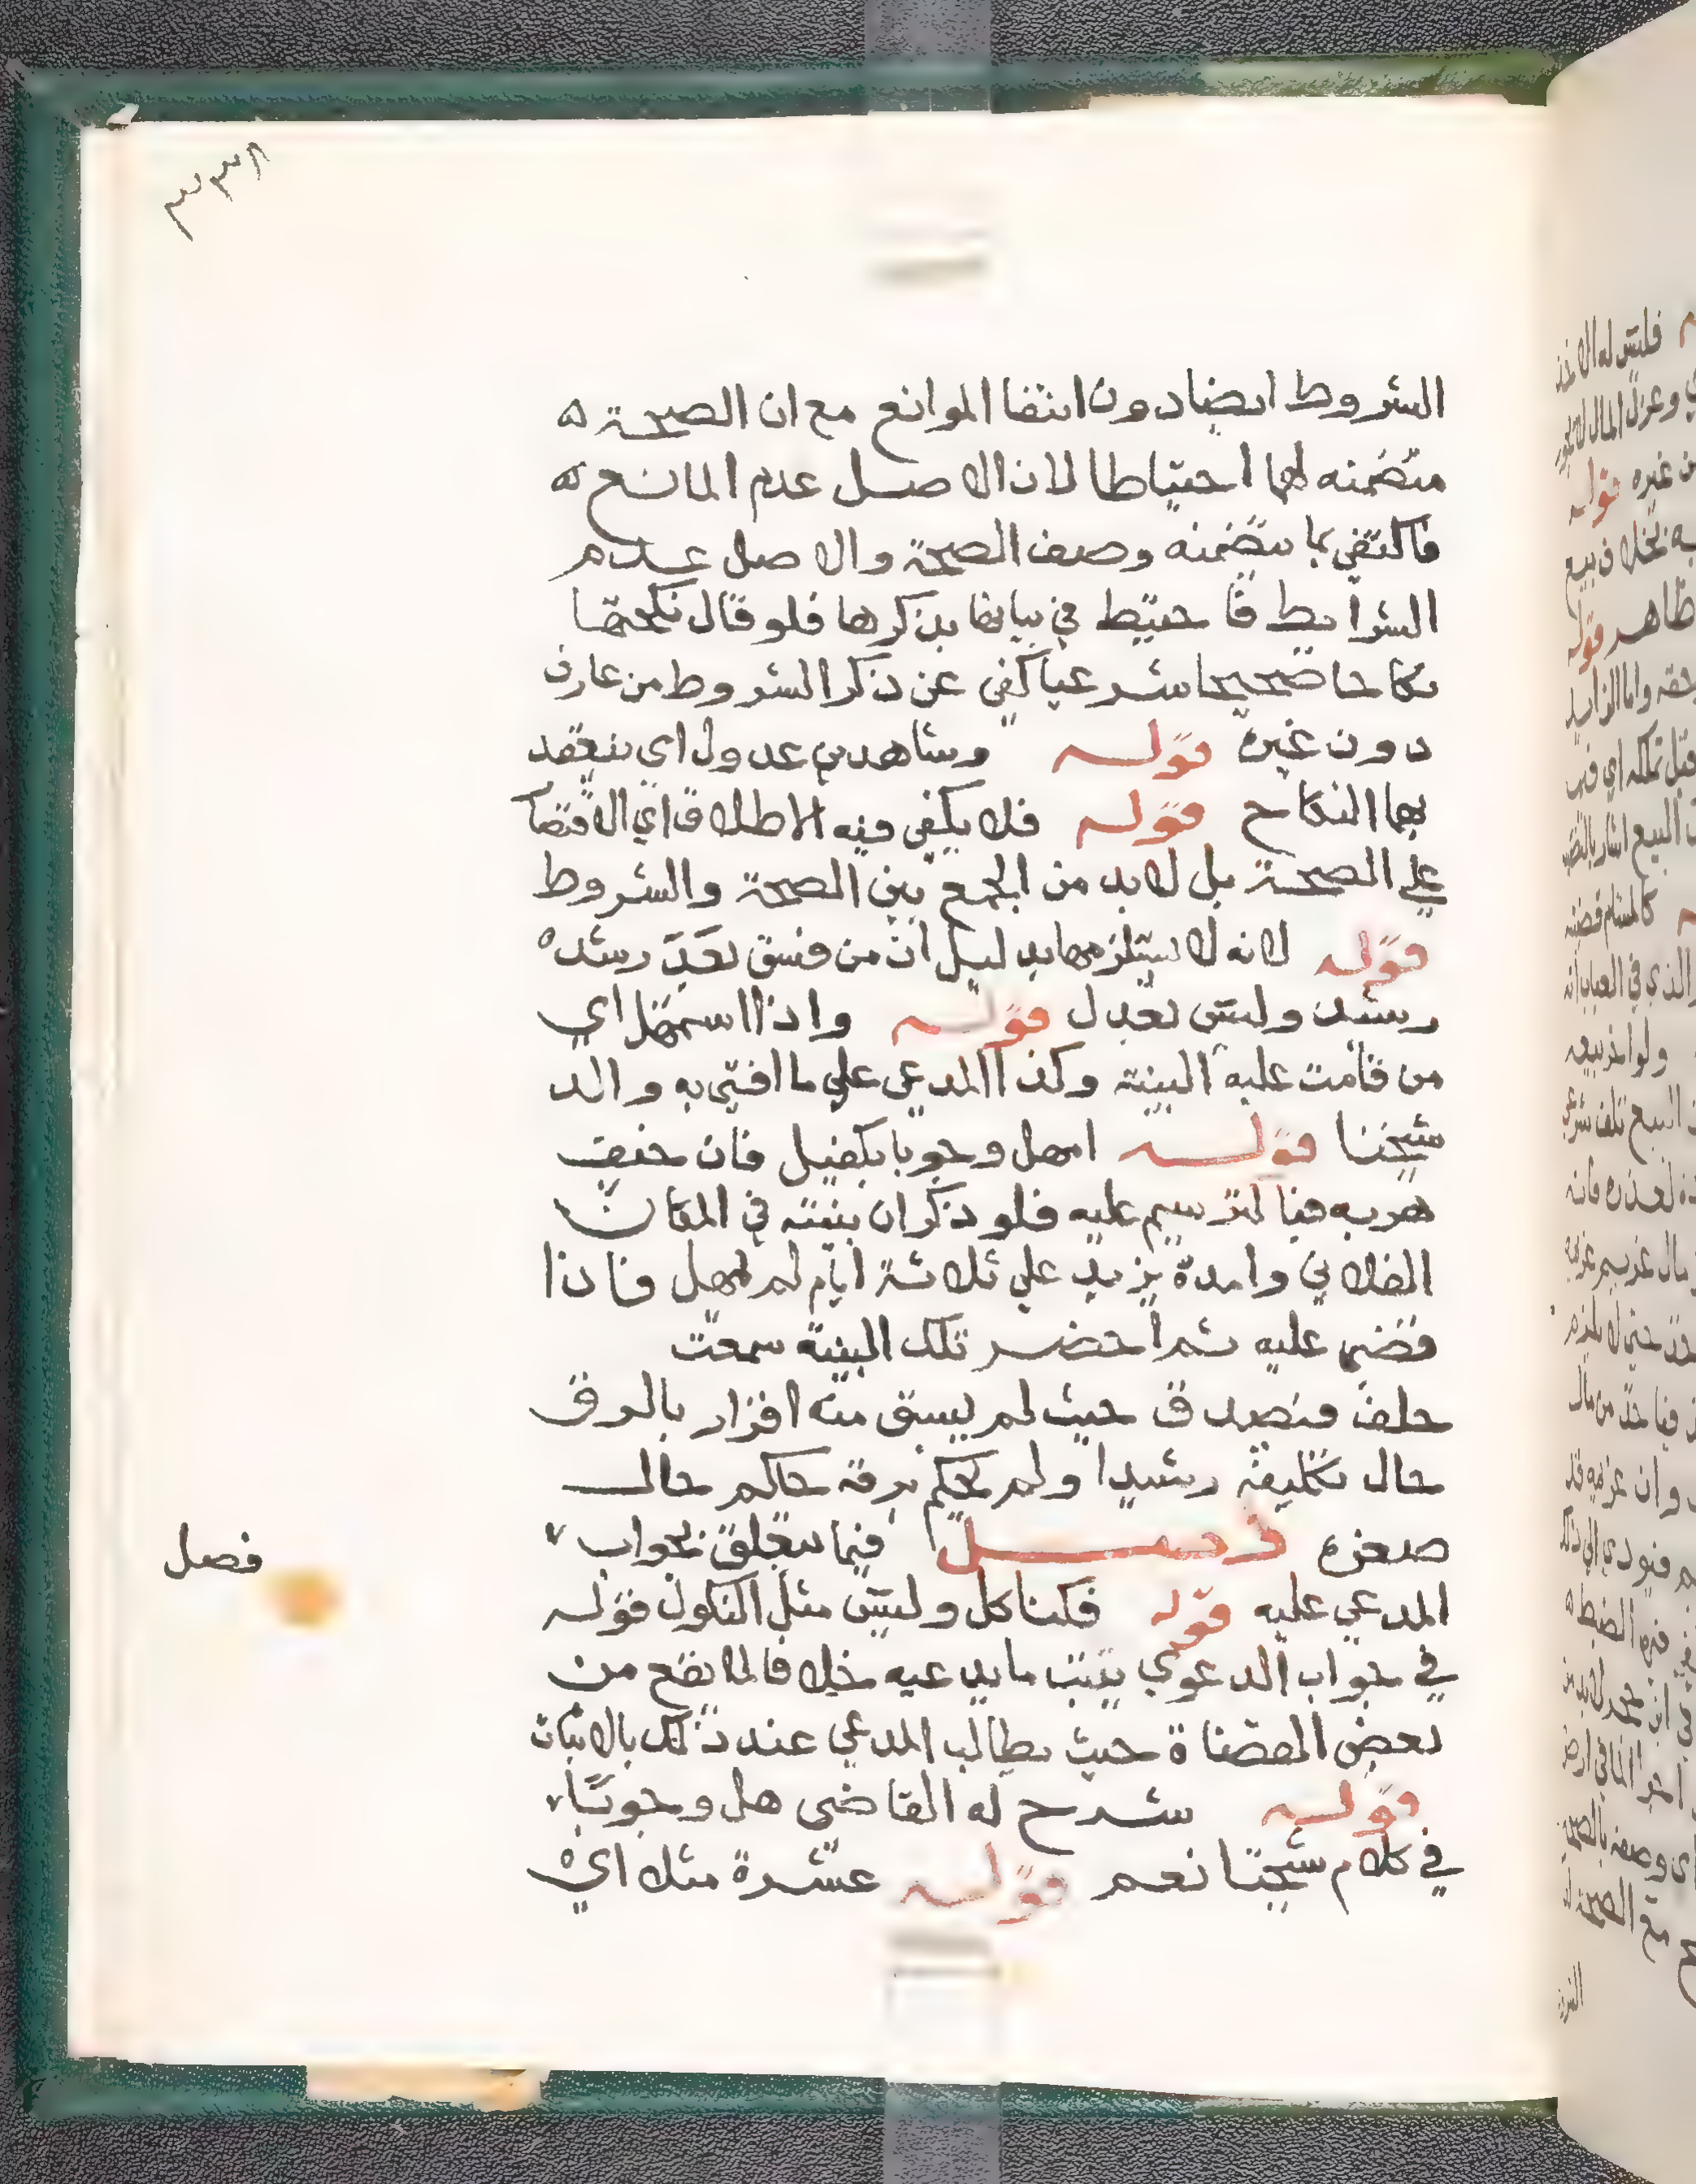 ٣٣٨
الشروط ايضا دون انتفا الموانع مع ان الصحة ه
متضمنه لهما احتياطا لان الاصل عدم المانع ه
فاكتفي بما تتضمنه وصف الصحة والاصل عدم
الشرايط فاحتيط في بيانها بذكرها فلو قال نكحتها
نكاحا صحيحا شرعيا كفي عن ذكر الشروط من عارف
دون غيره قوله وشاهدين عدول اي ينعقد
بهما النكاح قوله فلا يكفي فيه الاطلاق اي الاقتصا
علي الصحة بل لا بد من الجمع بين الصحة والشروط
قوله لانه لا يستلزمها بدليل ان من فسق بعد رشده
رشيد وليس بعدل قوله واذا استمهل اي
من قامت عليه البينة وكذا المدعي علي ما افتي به والد
شيخنا قوله امهل وجوبا بكفيل فان خيف
هربه فبالترسيم عليه فلو ذكر ان بينته في المكان
الفلاني وامدة يزيد علي ثلاثة ايام لم يمهل فاذا
قضي عليه ثم احضر تلك البينة سمعت
حلف فنصدق حيث لم يسبق منه اقرار بالرق
حال تكليفه رشيدا ولم يحكم برقه حاكم حال
صغره فصل فيما يتعلق بجواب
فصل
المدعي عليه قوله فكناكل وليس مثل النكول قوله
في جواب الدعوي يثبت ما يدعيه خلافا لما يقع من
بعض القضاة حيث يطالب المدعي عند ذلك بالاثبات
قوله شرح له القاضي هل وجوبا
في كلام شيخنا نعم قوله عشرة مثلا اي